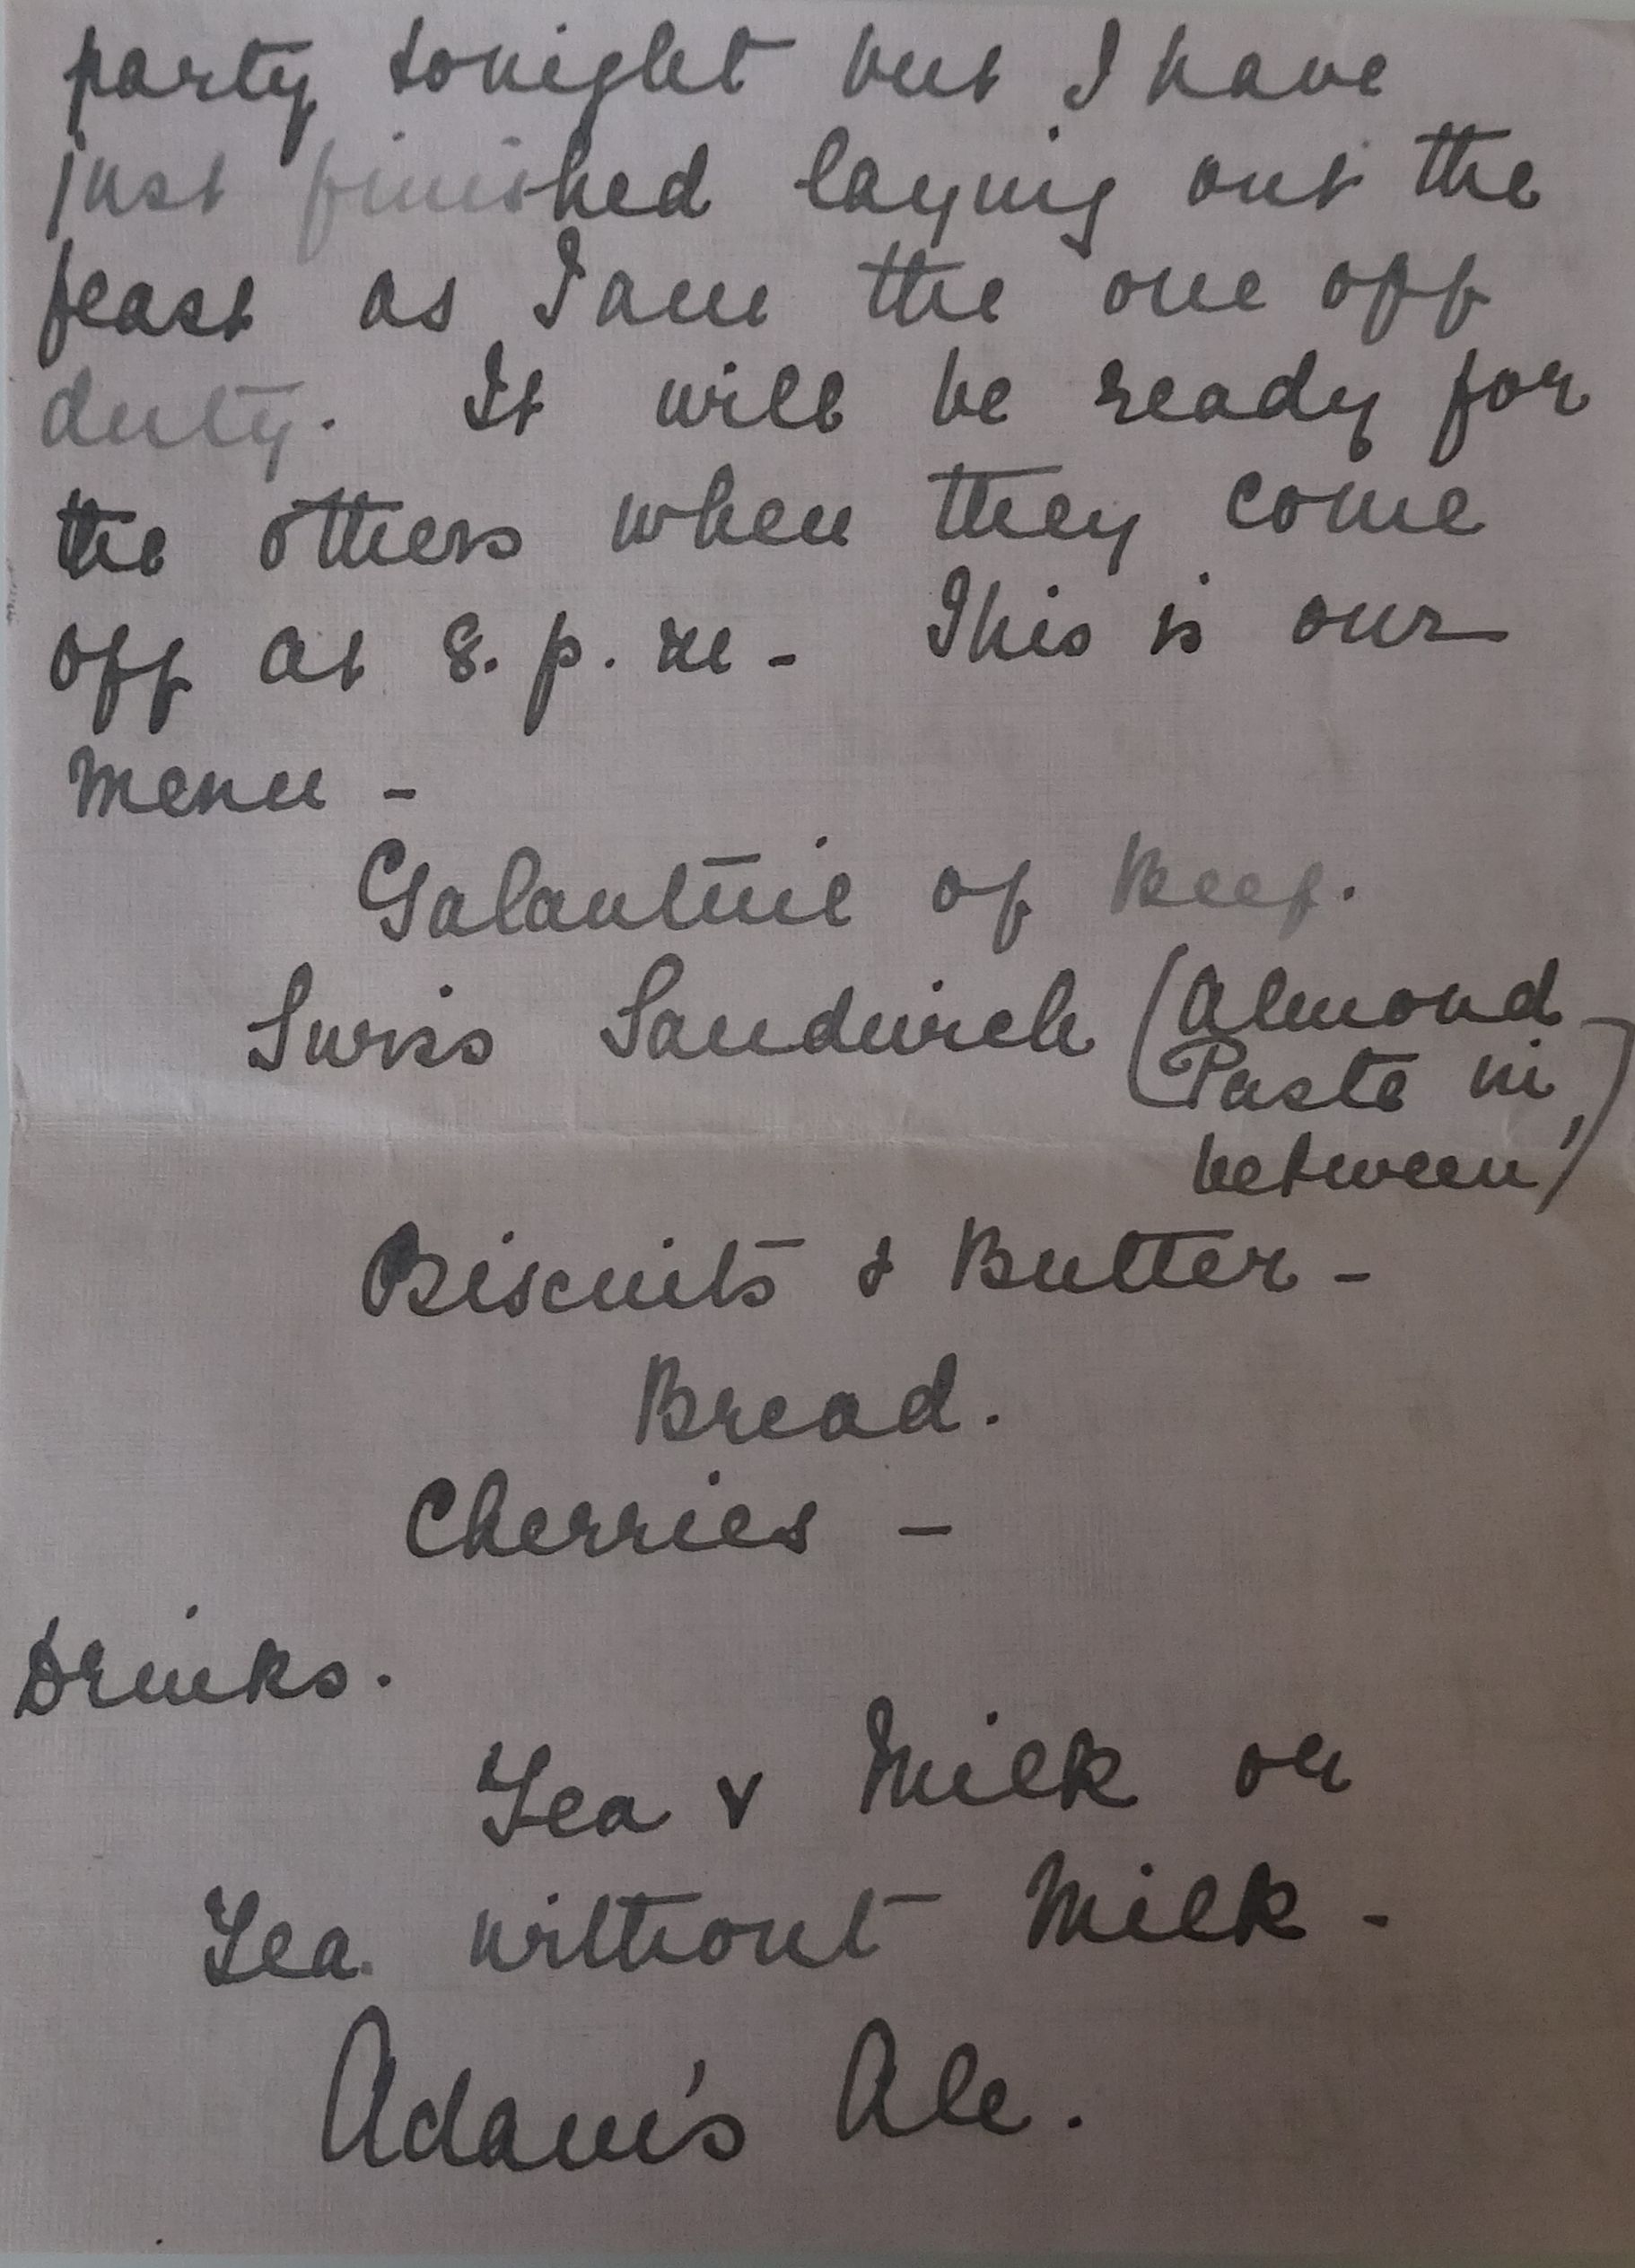 party tonight but I have
just finished laying out the
feast as I am the one off
duty. It will be ready for
the others when they come
off at 8. p. m - This is our
menu -
Galantine of Beef.
Swiss Sandwich (Almond
Paste in
between)
Biscuits & Butter -
Bread.
Cherries -
Drinks.
Tea & Milk or
Tea without Milk -
Adam's Ale.